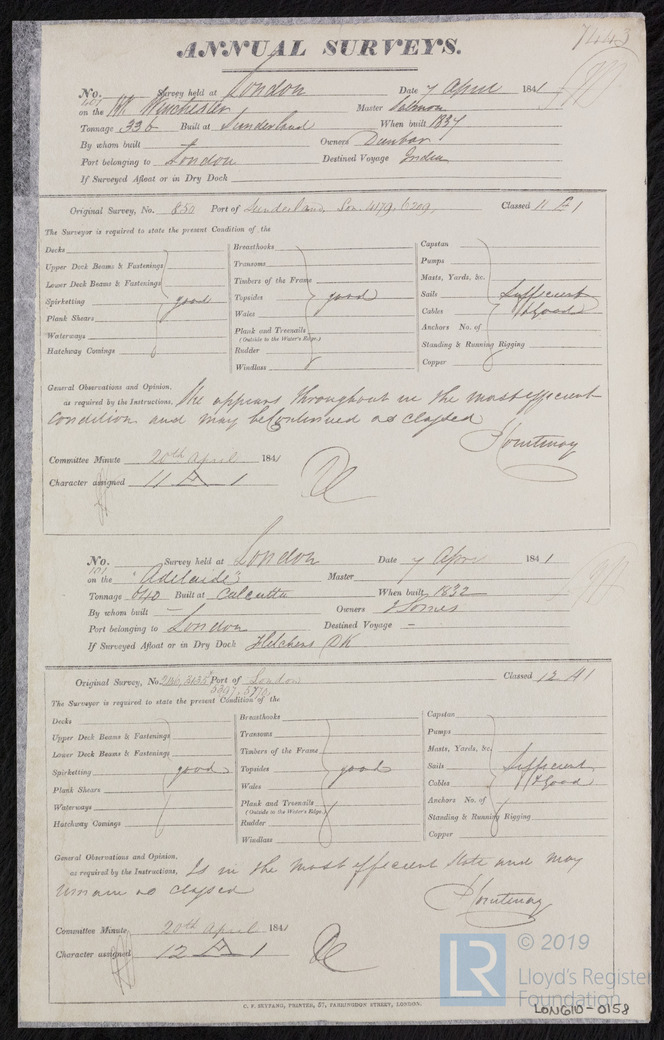 7443
ANNUAL SURVEYS.
No. Survey held at London Date 7 April 1841
on the Winchester Master Salmon
Tonnage 336 Built at Sunderland When built 1837
By whom built Owners Dunbar
Port belonging to London Destined Voyage India
If Surveyed Afloat or in Dry Dock
Original Survey, No. 850 Port of Sunderland, Lon. 4179, 6209, Classed 11 A 1
The Surveyor is required to state the present Condition of the
Decks Breasthooks Capstan
Upper Deck Beams & Fastenings Transoms Pumps
Lower Deck Beams & Fastenings Timbers of the Frame Masts, Yards, &c.
Spirketting good Topsides good Sails Sufficient
Plank Shears Wales Cables & Good
Waterways Plank and Treenails Anchors No. of
(Outside to the Water's Edge.)
Hatchway Comings Rudder Standing & Running Rigging
Windlass Copper
General Observations and Opinion,
as required by the Instructions, She appears throughout in the most efficient
Condition and may be Continued as classed
Courtenay
Committee Minute 20th April 1841
Character assigned 11 A 1
No. Survey held at London Date 7 April 1841
101
on the "Adelaide" Master
Tonnage 640 Built at Calcutta When built 1832
By whom built Owners Somes
Port belonging to London Destined Voyage
If Surveyed Afloat or in Dry Dock Fletchers DK
Original Survey, No. Port of London Classed 12 A 1
The Surveyor is required to state the present Condition of the
Decks Breasthooks Capstan
Upper Deck Beams & Fastenings Transoms Pumps
Lower Deck Beams & Fastenings Timbers of the Frame Masts, Yards, &c.
Spirketting good Topsides good Sails Sufficient
Plank Shears Wales Cables & Good
Waterways Plank and Treenails Anchors No. of
(Outside to the Water's Edge.)
Hatchway Comings Rudder Standing & Running Rigging
Windlass Copper
General Observations and Opinion,
as required by the Instructions, Is in the most efficient state and may
remain as classed
Courtenay
Committee Minute 20th April 1841
Character assigned 12 A 1
C. F. SEYFANG, PRINTER, 57, FARRINGDON STREET, LONDON.
LR © 2019
Lloyd's Register
Foundation
LON610-0158